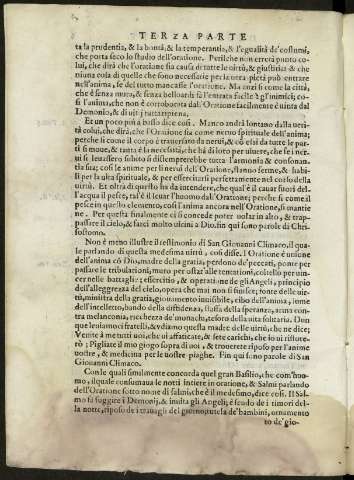 TERZA PARTE
ta la prudentia, & la bontà, & la temperantia, & l'egualità de' costumi,
che porta seco lo studio dell'oratione. Perilche non errerà punto co-
lui, che dirà che l'oratione sia causa di tutte le uirtù, & giustitia: & che
niuna cosa di quelle che sono necessarie per la uera pietà può entrare
nell'anima, se del tutto manca l'oratione. Ma anzi sì come la città,
che è senza mura, & senza bellouardi fà l'entrata facile à gl'inimici; co-
sì l'anima, che non è corroborata dall'Oratione facilmente è uinta dal
Demonio, & di uitij tutta ripiena.
Et un poco più à basso dice così. Manco andrà lontano dalla ueri-
tà colui, che dirà, che l'Oratione sia come neruo spirituale dell'anima;
perche sì come il corpo è trauersato da nerui, & co essi dà tutte le par-
ti si moue, & tutta è la necessità, che hà di loro per uiuere, che se i ner-
ui si leuassero subito si distemprerebbe tutta l'armonia & consonan-
tia sua; così le anime per li nerui dell'Oratione, stanno ferme, & habi-
li per la uita spirituale, & per essercitarsi perfettamente nel corso della
uirtù. Et oltra di questo hà da intendere, che qual'è il cauar fuori del-
l'acqua il pesce, tal'è il leuar l'huomo dall'Oratione; perche sì come il
pesce in questo elemento, così l'anima ancora nell'Oratione, si mantie-
ne. Per questa finalmente ci si concede poter uolar in alto, & trap-
passare il cielo, & farci molto uicini a Dio, fin quì sono parole di Chri-
sostomo.
Non è meno illustre il testimonio di San Giouanni Climaco, il qua-
le parlando di questa medesima uirtù, così disse. L'Oratione è unione
dell'anima cō Dio, madre della gratia, perdono de' peccati, ponte per
passare le tribulationi, muro per ostar'alle tentationi, coltello per uin-
cer nelle battaglie: essercitio, & operatione de gli Angeli, principio
dell'allegrezza del cielo, opera che mai non si finisce; fonte delle uir-
tù, ministra della gratia, giouamento inuisibile, cibo dell'anima, lume
dell'intelletto, bando della diffidenza, stassa della speranza, arma con-
tra melanconia, ricchezza de' monachi, tesoro della uita solitaria. Dun
que leuiamoci fratelli, & udiamo questa madre delle uirtù, che ne dice;
Venite à me tutti uoi, che ui affaticate, & sete carichi, che io ui ristaue-
rò; Pigliate il mio giogo sopra di uoi, & trouerete riposo per l'anime
uostre, & medicina per le uostre piaghe. Fin quì sono parole di San
Giouanni Climaco.
Con le quali similmente concorda quel gran Basilio, che com'huo-
mo, il quale consumaua le notti intiere in oratione, & Salmi parlando
dell'Oratione sotto nome di salmi, che è il medesimo, dice così. Il Sal-
mo fà fuggire i Demonij, & inuita gli Angeli; è scudo de i timori del-
la notte, riposo de i trauagli del giorno, tutela de' bambini, ornamento
to de' gio-